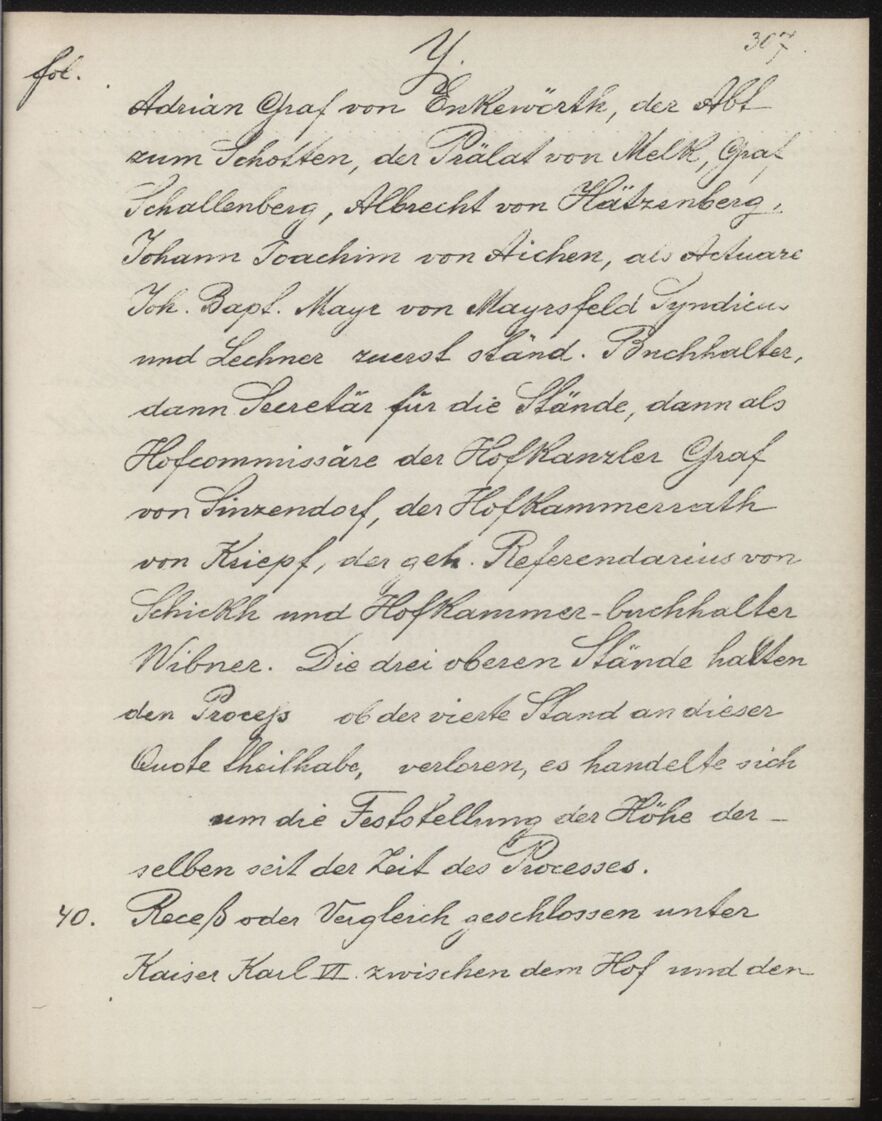 Y.
307.
fol.
Adrian Graf von Enkewörth, der Abt
zum Schotten, der Prälat von Melk, Graf
Schallenberg, Albrecht von Hätzenberg,
Johann Joachim von Aichen, als Actuare
Joh. Bapt. Mayr von Mayrsfeld Syndicus
und Lechner zuerst ständ. Buchhalter,
dann Secretär für die Stände, dann als
Hofcommissäre der Hofkanzler Graf
von Sinzendorf, der Hofkammerrath
von Kriepf, der geh. Referendarius von
Schickh und Hofkammer-buchhalter
Wibner. Die drei oberen Stände hatten
den Proceß ob der vierte Stand an dieser
Quote theilhabe, verloren, es handelte sich
um die Feststellung der Höhe der-
selben seit der Zeit des Processes.
40. Receß oder Vergleich geschlossen unter
Kaiser Karl VI. zwischen dem Hof und den